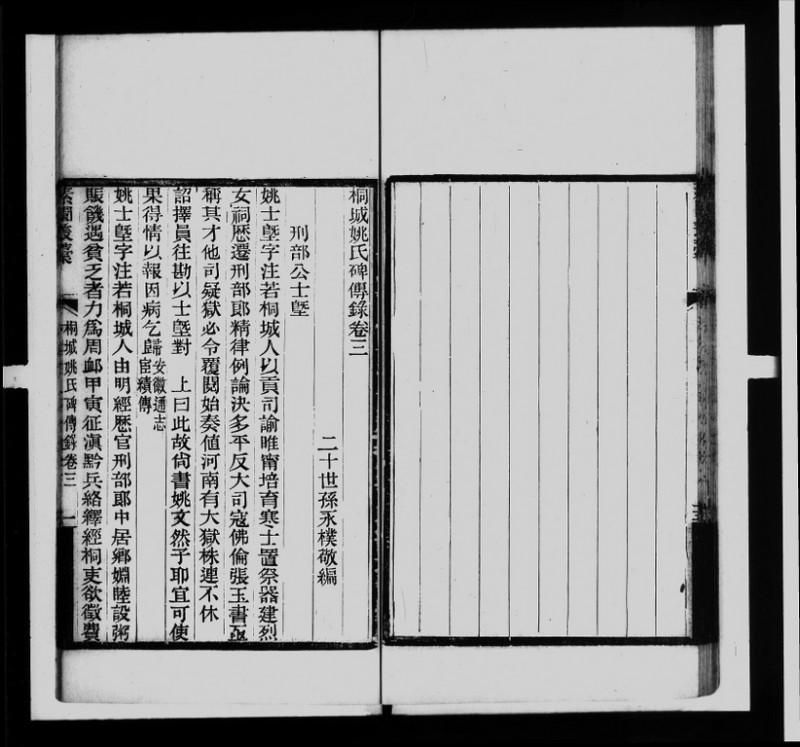 桐城姚氏碑傳錄卷三
二十世孫永樸敬編
刑部公士塈
姚士塈字注若桐城人以貢司諭睢甯培育寒士置祭器建烈
女祠歷遷刑部郎精律例論決多平反大司寇佛倫張玉書亟
稱其才他司疑獄必令覆閱始奏值河南有大獄株連不休
詔擇員往勘以士塈對 上曰此故尚書姚文然子耶宜可使
果得情以報因病乞歸安徽通志宦績傳
姚士塈字注若桐城人由明經歷官刑部郎中居鄉婣睦設粥
賑饑遇貧乏者力爲周卹甲寅征滇黔兵絡繹經桐吏欲徵費
桐城姚氏碑傳錄卷三 一